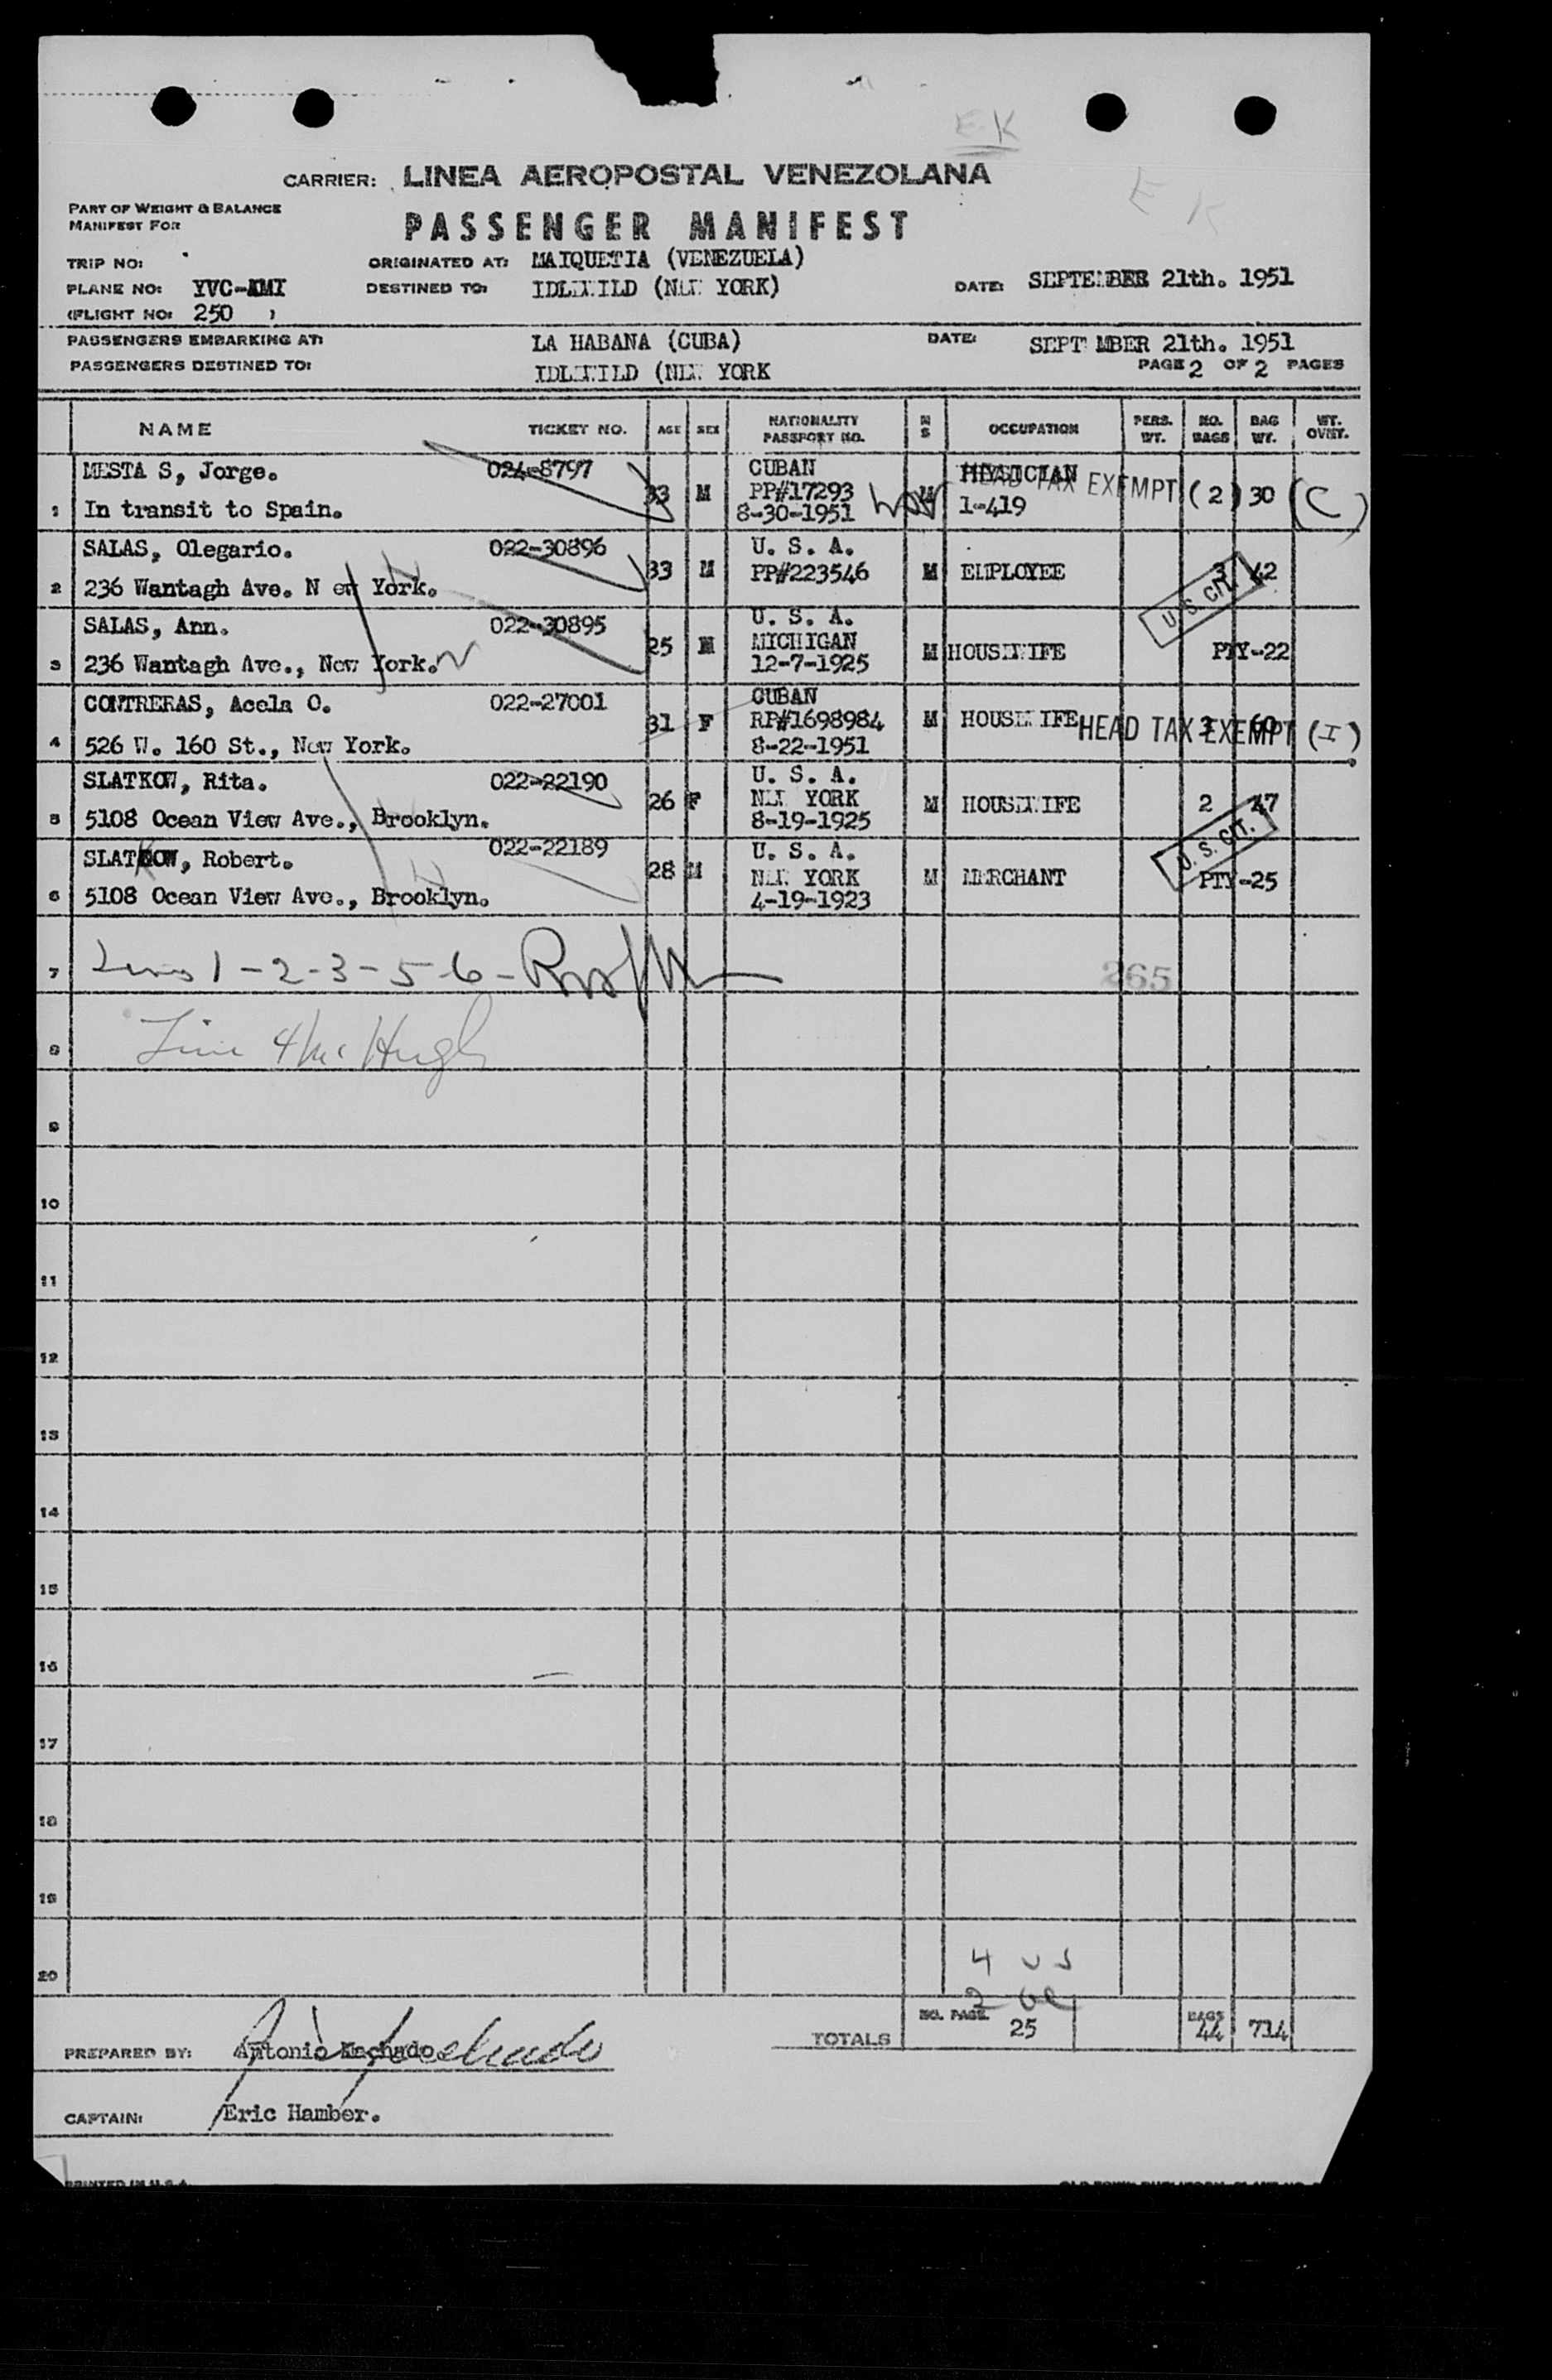 EK
EK
CARRIER: LINEA AEROPOSTAL VENEZOLANA
PART OF WEIGHT & BALANCE
MANIFEST FOR
PASSENGER MANIFEST
TRIP NO:
ORIGINATED AT: MAIQUETIA (VENEZUELA)
PLANE NO: YVC-AMI
DESTINED TO: IDLEWILD (NEW YORK)
DATE: SEPTEMBER 21th. 1951
(FLIGHT NO: 250 )
PASSENGERS EMBARKING AT: LA HABANA (CUBA) DATE: SEPT MBER 21th. 1951
PASSENGERS DESTINED TO: IDLEWILD (NEW YORK
PAGE 2 OF 2 PAGES
NAME TICKET NO. AGE SEX NATIONALITY PASSPORT NO. M S OCCUPATION PERS. WT. NO. BAGS BAG WT. WT. OVWT.
MESTA S, Jorge. 024-8797 CUBAN PHYSICIAN
1 In transit to Spain. 33 M PP#17293 M HEAD TAX EXEMPT (2) 30 (C)
8-30-1951 1-419
SALAS, Olegario. 022-30896 U. S. A.
2 236 Wantagh Ave. N ew York. 33 M PP#223546 M EMPLOYEE 3 42
U. S. CIT.
SALAS, Ann. 022-30895 U. S. A.
25 M MICHIGAN M HOUSEWIFE PTY-22
3 236 Wantagh Ave., New York. 12-7-1925
CONTRERAS, Acela O. 022-27001 CUBAN
31 F RP#1698984 M HOUSEWIFE HEAD TAX EXEMPT (I) 3 60
4 526 W. 160 St., New York. 8-22-1951
SLATKOW, Rita. 022-22190 U. S. A.
26 F NEW YORK M HOUSEWIFE 2 47
5 5108 Ocean View Ave., Brooklyn. 8-19-1925
U. S. CIT.
SLATKOW, Robert. 022-22189 U. S. A.
28 M NEW YORK M MERCHANT PTY-25
6 5108 Ocean View Ave., Brooklyn. 4-19-1923
7 Lines 1-2-3-5-6- 265
8 Line 4 McHugh
9
10
11
12
13
14
15
16
17
18
19
4 US
20
2
TOTALS NO. PASS. 25 BAGS 44 714
PREPARED BY: Antonio Machado.
CAPTAIN: Eric Hamber.
PRINTED IN U.S.A.